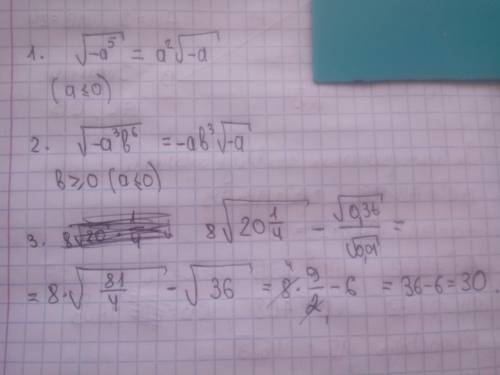 1. √(-a⁵) = a²√(-a)
(a ≤ 0)
2. √(-a³b⁶) = -ab³√(-a)
b ≥ 0 (a ≤ 0)
3. 8√(20 1/4) - √0,36 / √0,01 =
= 8·√(81/4) - √36 = 8·9/2 - 6 = 36-6=30.